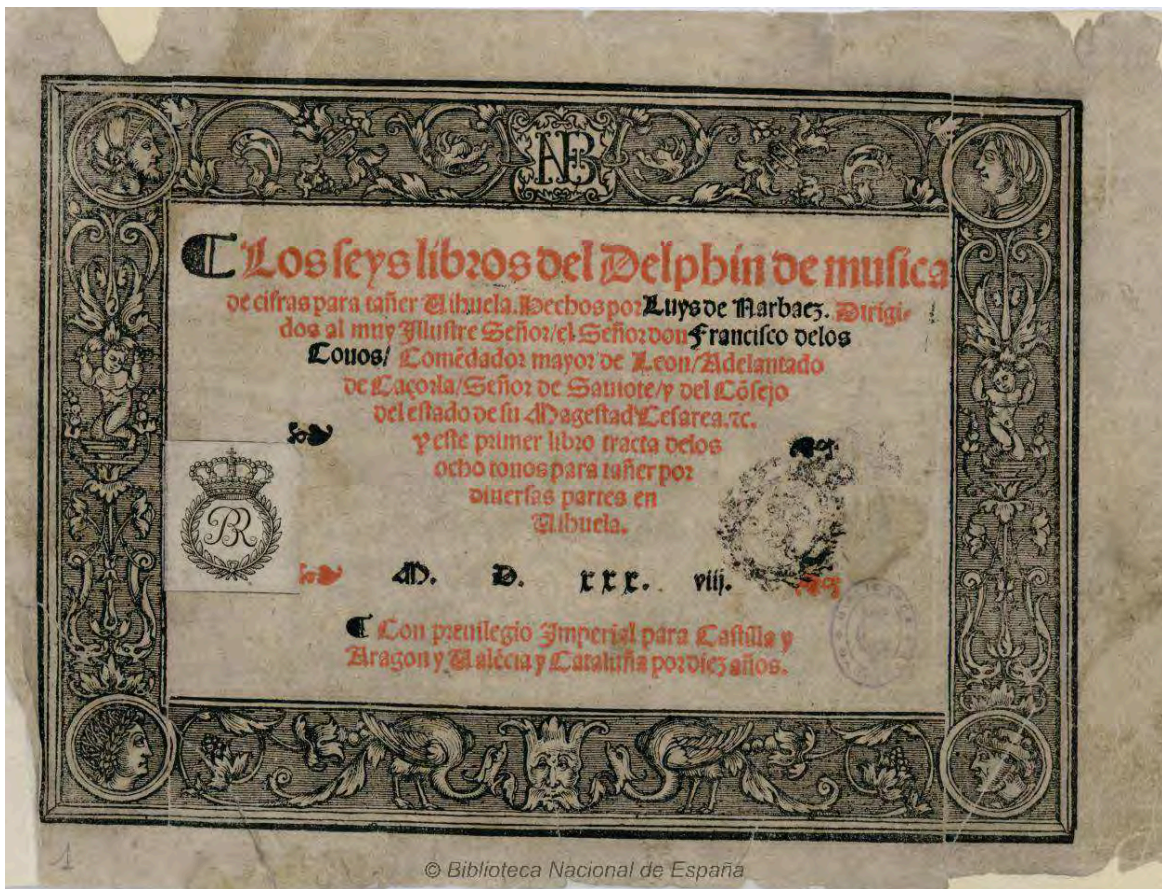 ¶ Los seys libros del Delphin de musica
de cifras para tañer Uihuela. Hechos por Luys de Narbaez. Dirigi-
dos al muy Illustre Señor/el Señor don Francisco delos
Couos/ Comẽdador mayor de Leon/Adelantado
de Caçorla/Señor de Sauiote/y del Cõsejo
del estado de su Magestad Cesarea.⁊c.
y este primer libro tracta delos
ocho tonos para tañer por
diuersas partes en
Uihuela.
BR
M. D. xxx. viij.
¶ Con preuilegio Imperial para Castilla y
Aragon y Ualẽcia y Cataluña por diez años.
1
© Biblioteca Nacional de España